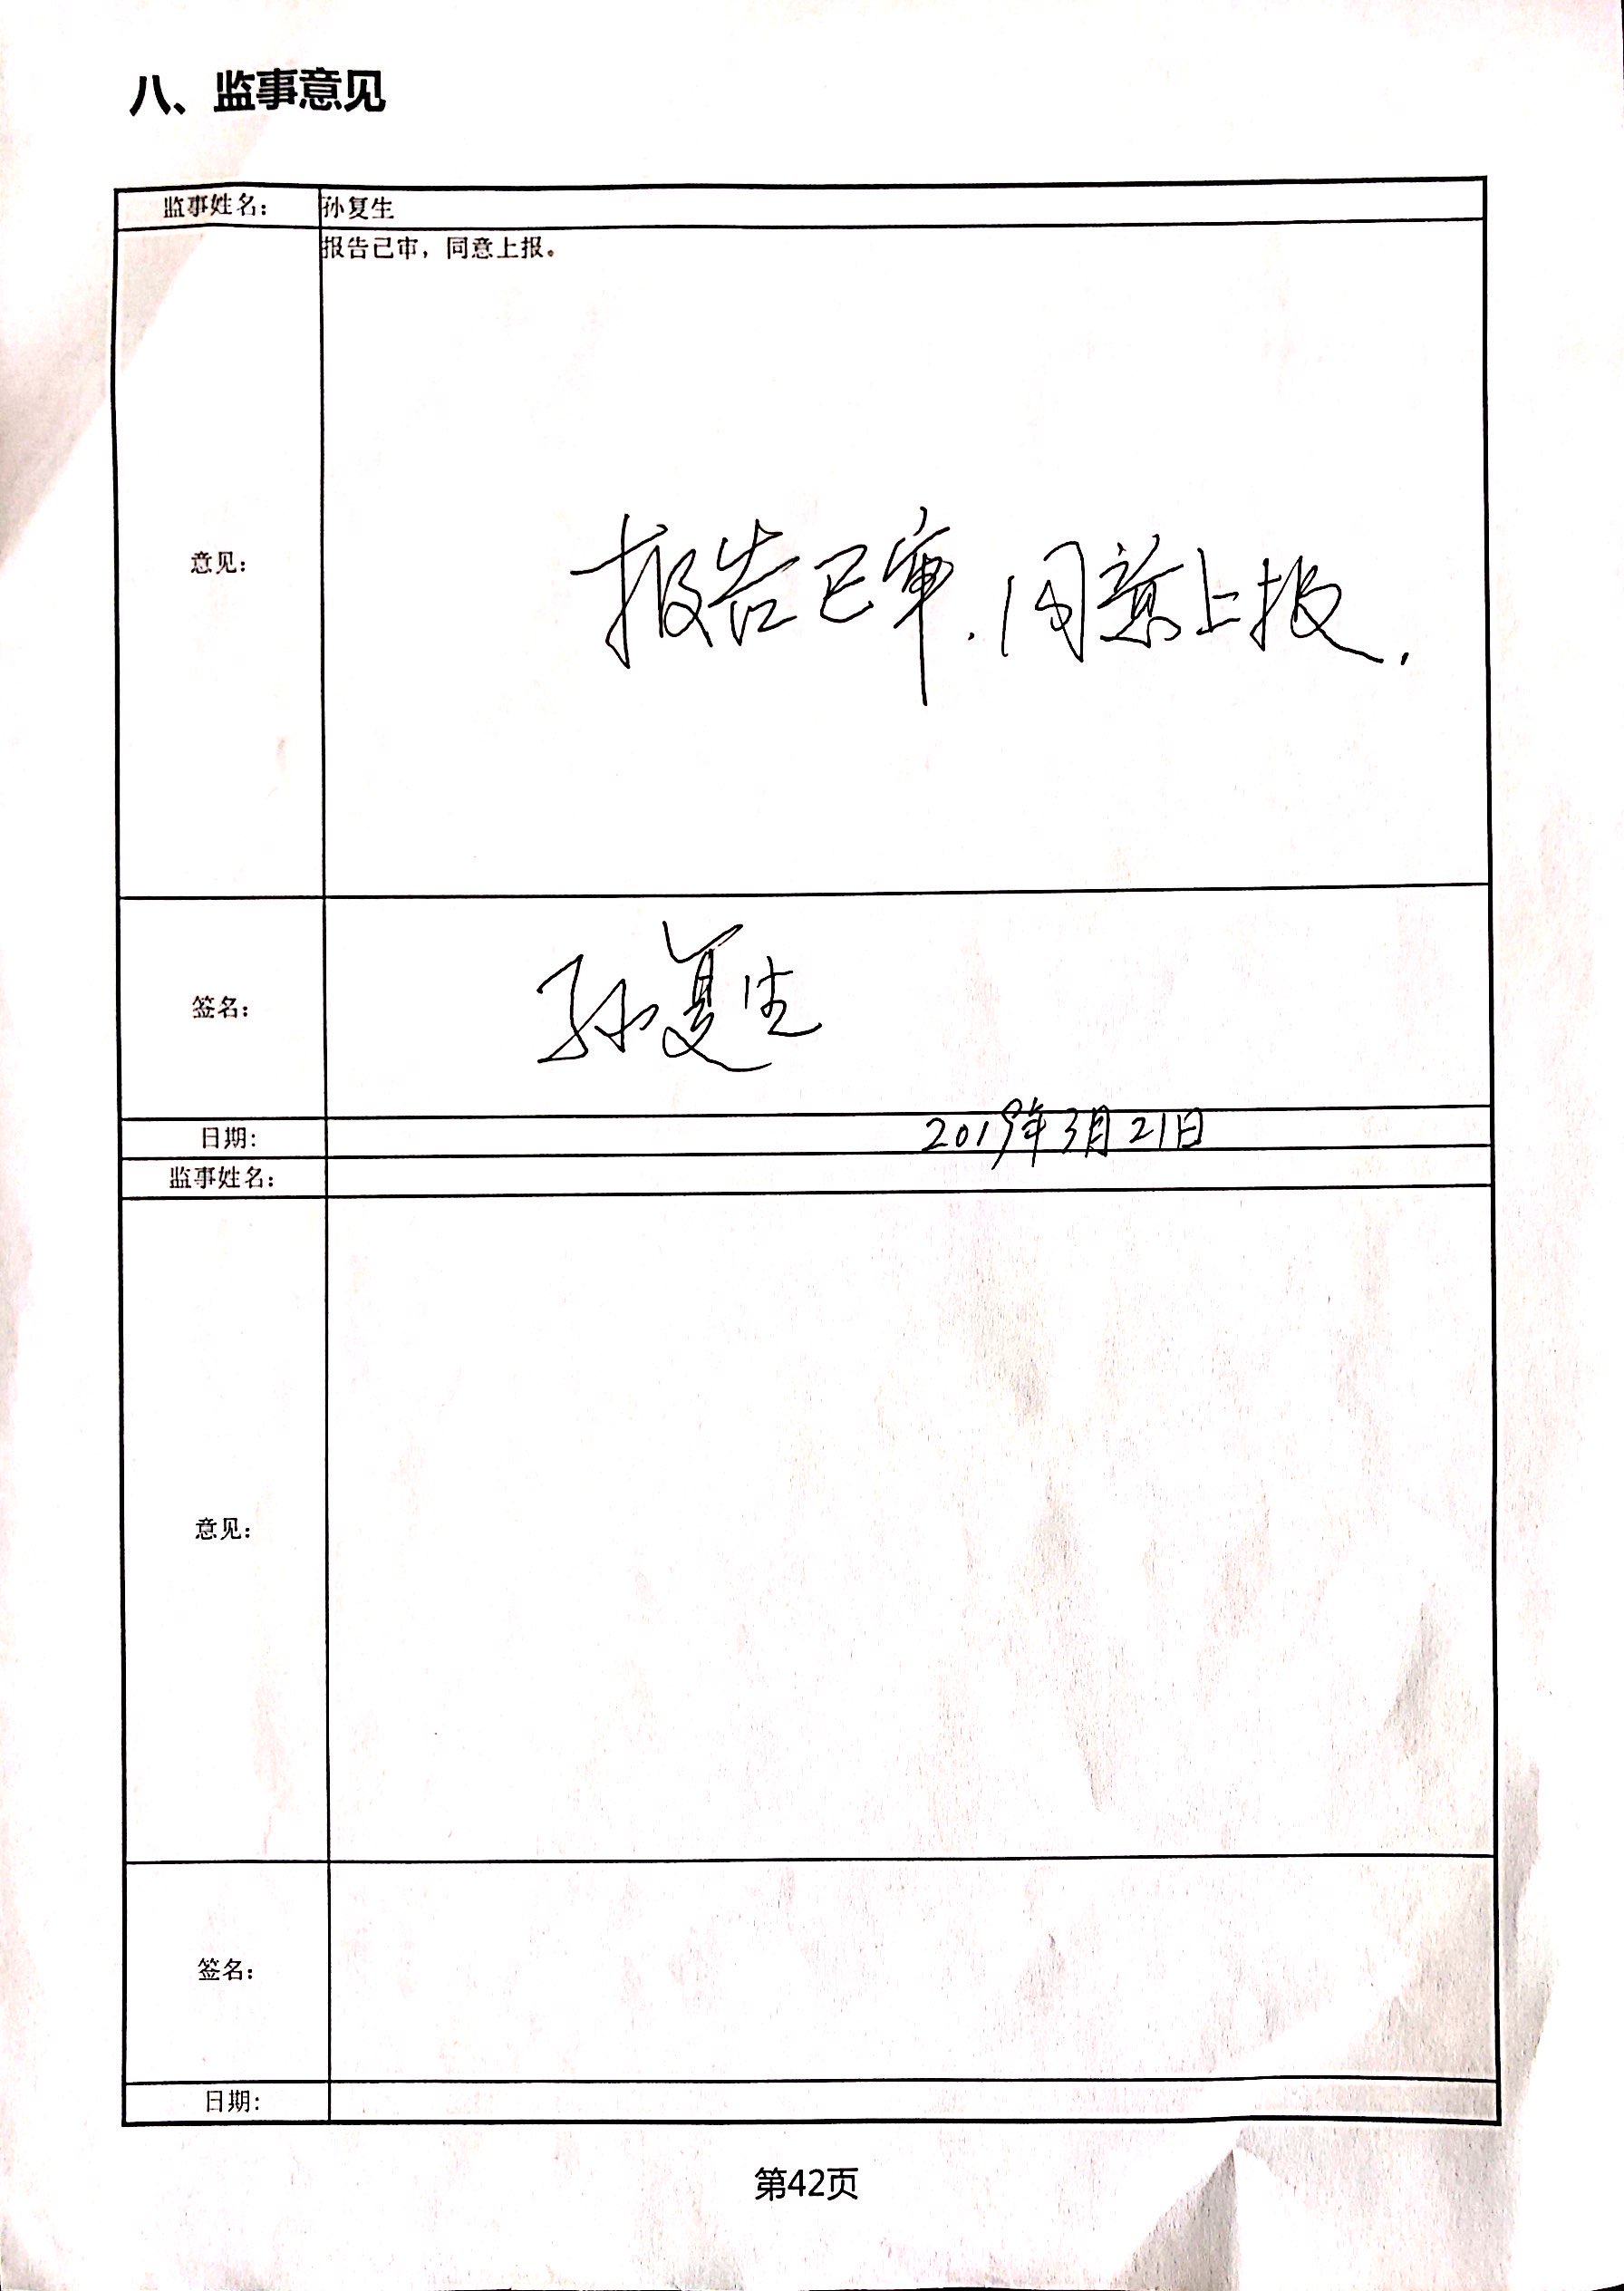 八、监事意见
监事姓名: 孙复生
报告已审，同意上报。
意见: 报告已审.同意上报.
签名: 孙复生
日期: 2019年3月21日
监事姓名:
意见:
签名:
日期:
第42页